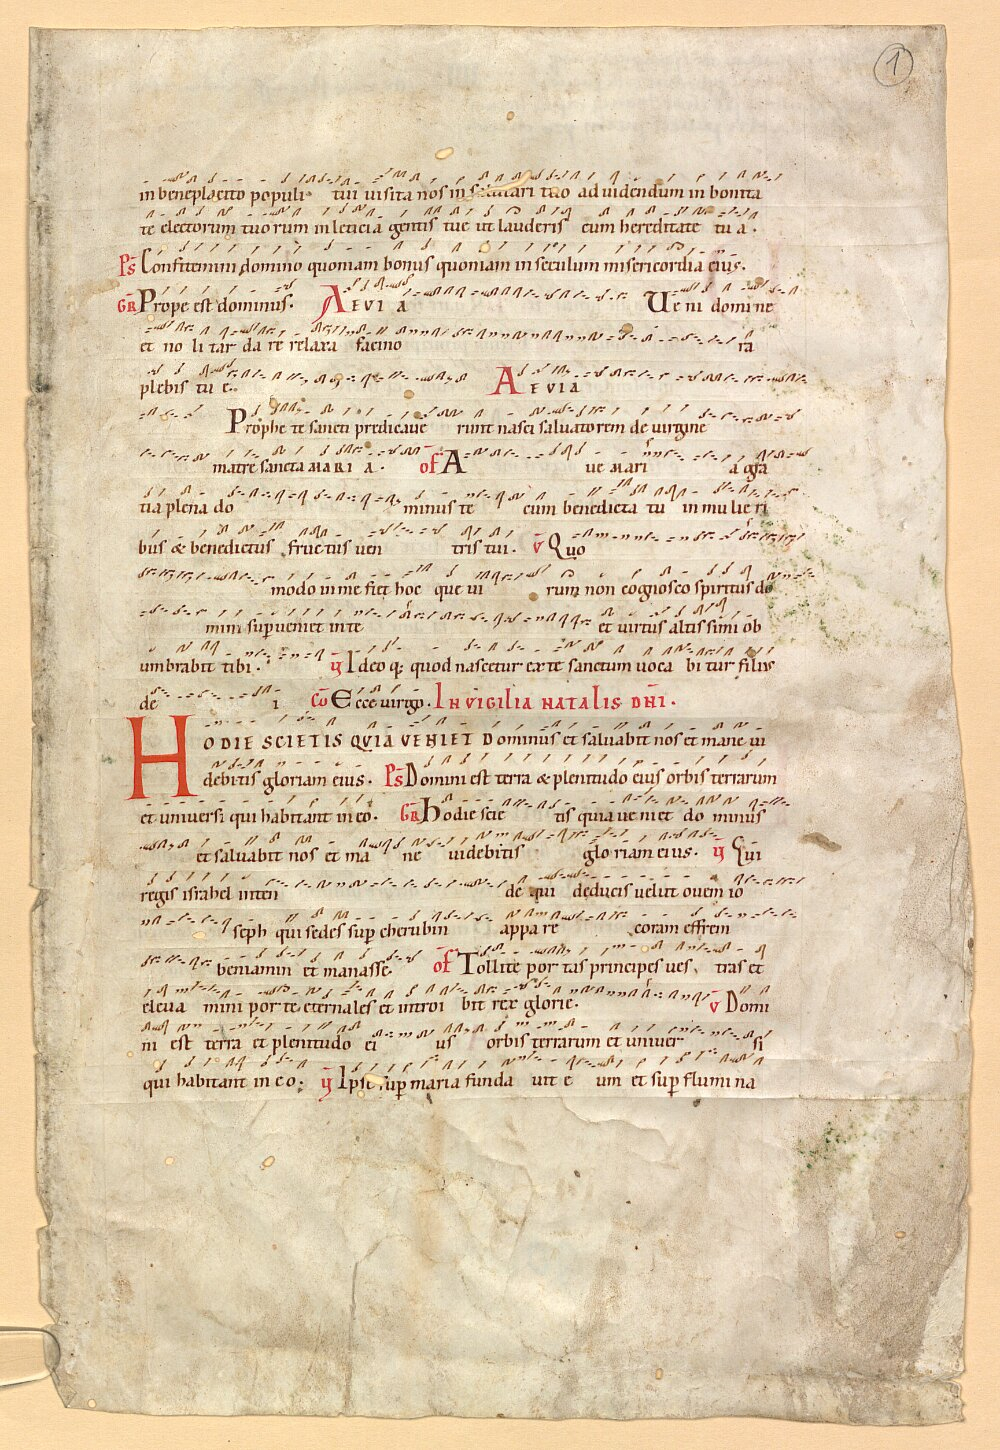 1
in beneplacito populi tui visita nos in salutari tuo ad videndum in bonita
te electorum tuorum in leticia gentis tue ut lauderis cum hereditate tu a.
Ps Confitemini domino quoniam bonus quoniam in seculum misericordia eius.
GR Prope est dominus. AEVIA Ue ni domine
et no li tar da re relaxa facino ra
plebis tu e. AEVIA
Prophe te sancti predicave runt nasci salvatorem de virgine
matre sancta MARI A. of A ue MARI a gra
tia plena do minus te cum benedicta tu in mulie ri
bus & benedictus fructus ven tris tui. v Quo
modo in me fiet hoc que vi rum non cognosco spiritus do
mini sup veniet in te et virtus altissimi ob
umbrabit tibi. Ideo q; quod nascetur ex te sanctum voca bi tur filius
de i Co Ecce virgo. IN VIGILIA NATALIS DNI.
HODIE SCIETIS QVIA VENIET Dominus et salvabit nos et mane vi
debitis gloriam eius. Ps Domini est terra & plenitudo eius orbis terrarum
et universi qui habitant in eo. GR Hodie scie tis quia ve niet do minus
et salvabit nos et ma ne videbitis gloriam eius. Qui
regis israhel inten de qui deducis velut ovem io
seph qui sedes sup cherubin appare coram effrem
beniamin et manasse. of Tollite por tas principes ves tras et
eleva mini por te eternales et introi bit rex glorie. v Domi
ni est terra et plenitudo ei us orbis terrarum et univer si
qui habitant in eo. Ipse sup maria funda vit e um et sup flumina